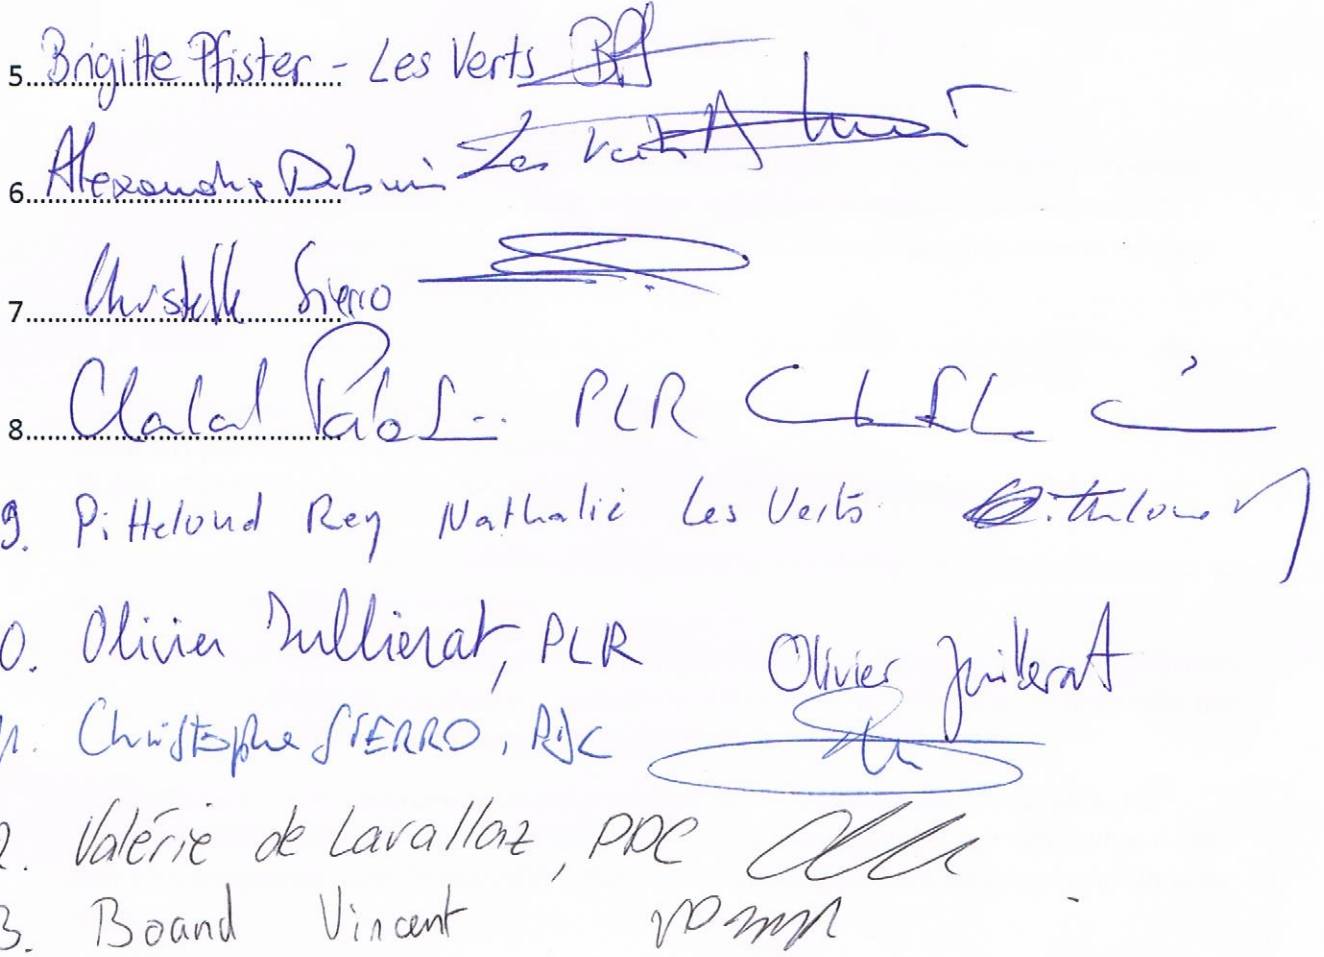 5. Brigitte Pfister - Les Verts
6. Alexandre Dubuis Les Verts
7. Christelle Sierro
8. PLR
9. Pitteloud Rey Nathalie Les Verts
0. Olivier Juillerat, PLR Olivier Juillerat
1. Christophe SIERRO, PDC
2. Valérie de Lavallaz, PDC
3. Boand Vincent